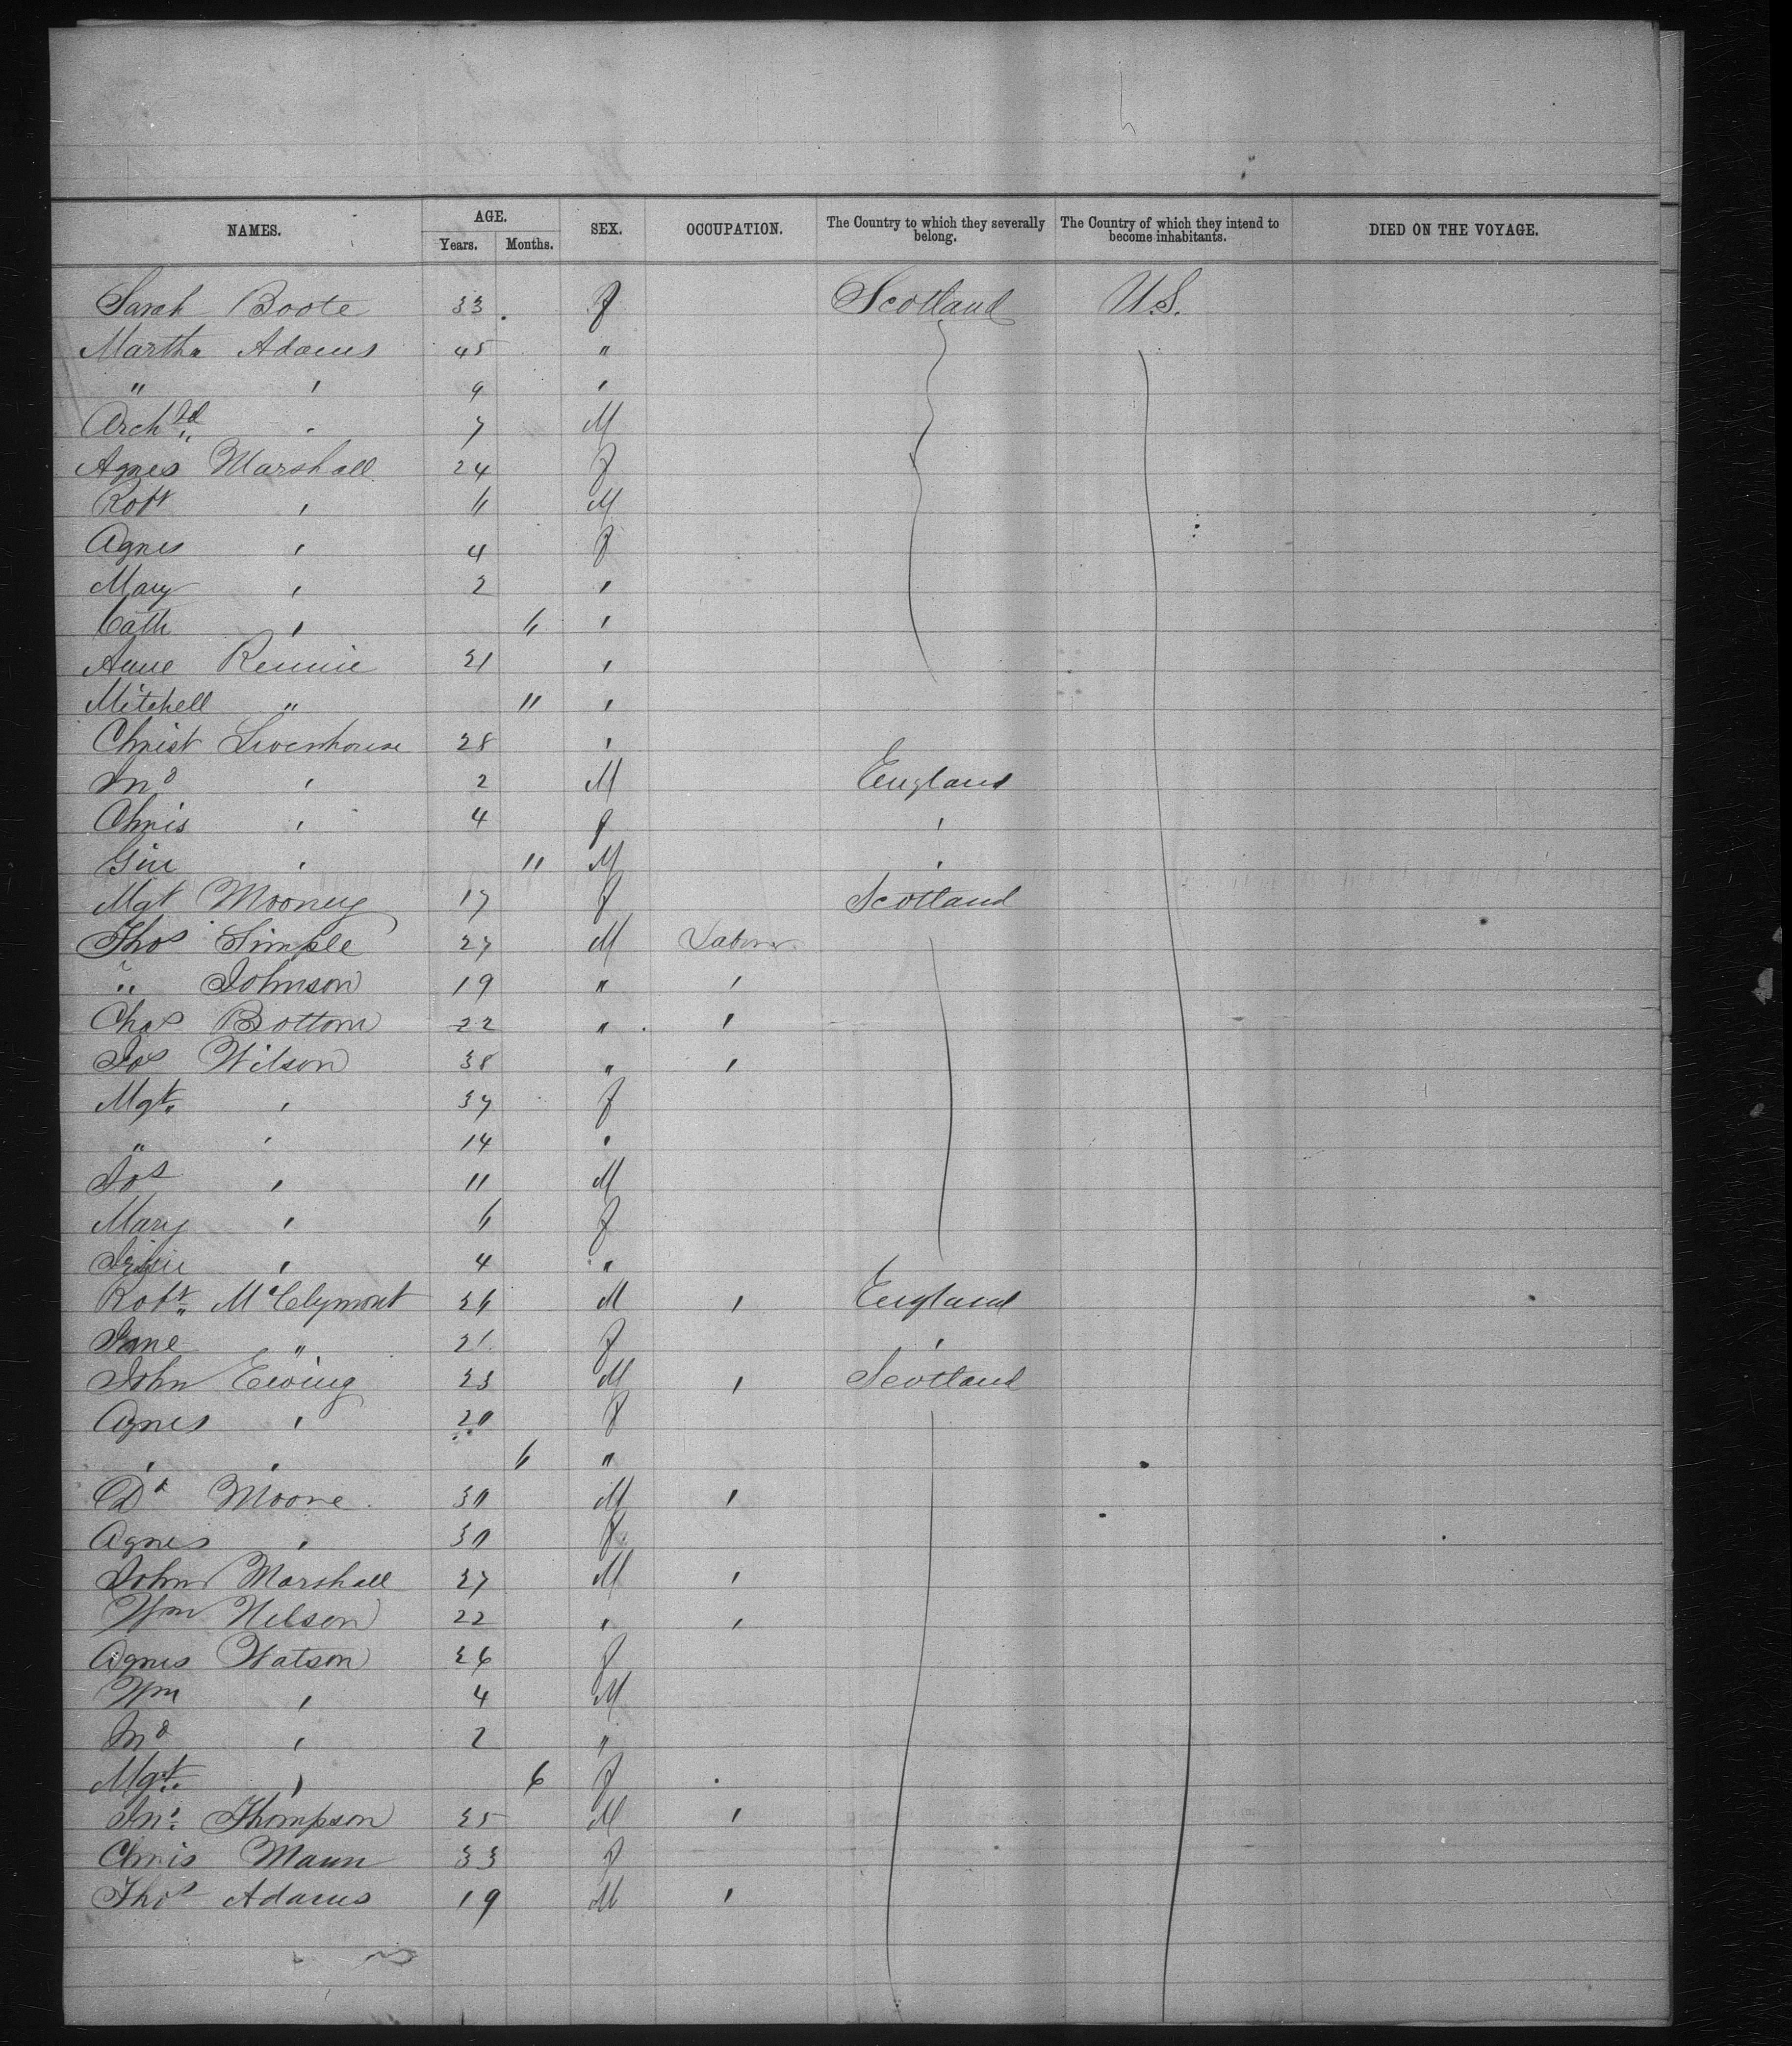 NAMES. AGE. SEX. OCCUPATION. The Country to which they severally belong. The Country of which they intend to become inhabitants. DIED ON THE VOYAGE.
Years. Months.
Sarah Boote 33 f Scotland U.S.
Martha Adams 45 "
" " 9 "
Archbd " 7 M
Agnes Marshall 24 f
Robt " 6 M
Agnes " 4 f
Mary " 2 "
Cath " 6 "
Anne Rennie 21 "
Mitchell " 11 "
Christ 28 "
Jno " 2 M England
Chris " 4 f "
" 11 M "
Mgt Mooney 17 f Scotland
Thos Simple 27 M Labour
" Johnson 19 " "
Chas Bottom 22 " "
Jos Wilson 38 " "
Mgt " 37 f
" " 14 "
Jos " 11 M
Mary " 6 f
" 4 "
Robt McClymont 26 M " England
Jane " 21 f "
John Ewing 23 M " Scotland
Agnes " 20 f
" " 6 "
Dd Moore 30 M "
Agnes " 30 f
John Marshall 27 M "
Wm Nelson 22 " "
Agnes Watson 26 f
Wm " 4 M
Jno " 2 "
Mgt " 6 f
Jno Thompson 25 M "
Chris Mann 33 f
Thos Adams 19 M "